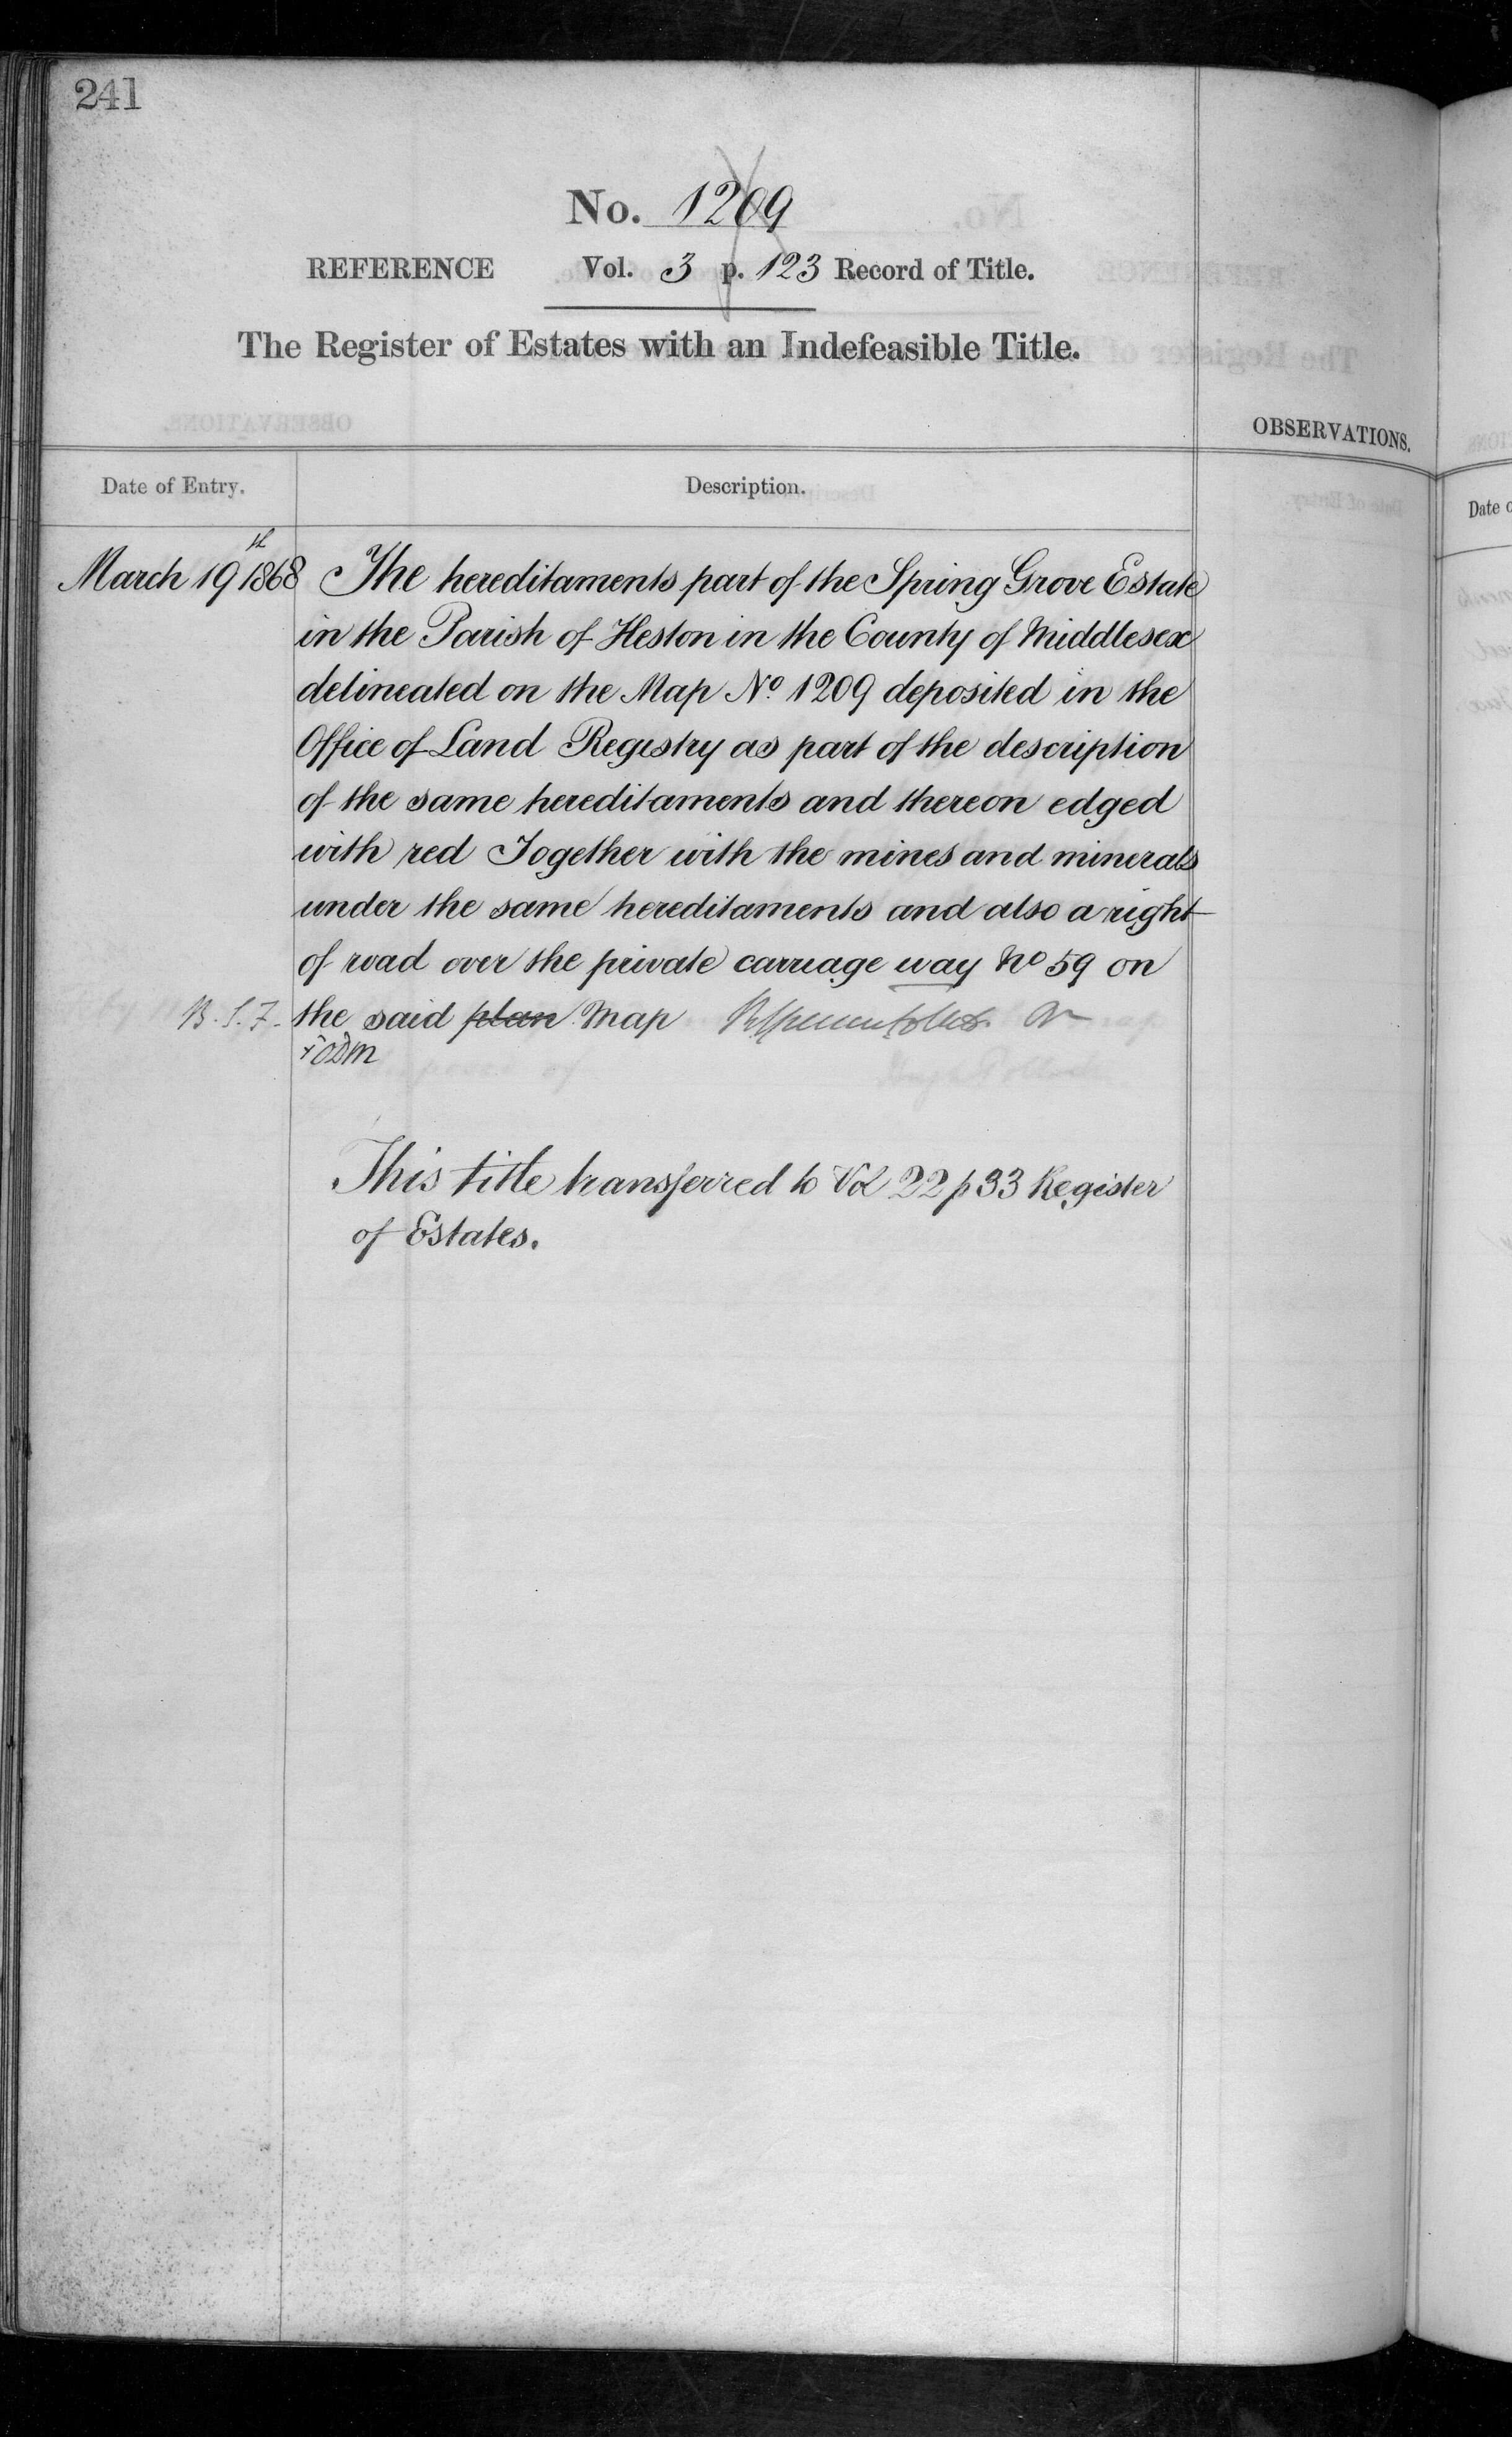 241
No. 1209
REFERENCE Vol. 3 p. 123 Record of Title.
The Register of Estates with an Indefeasible Title.
OBSERVATIONS.
Date of Entry. Description.
March 19th 1868 The hereditaments part of the Spring Grove Estate
in the Parish of Heston in the County of Middlesex
delineated on the Map No. 1209 deposited in the
Office of Land Registry as part of the description
of the same hereditaments and thereon edged
with red Together with the mines and minerals
under the same hereditaments and also a right
of road over the private carriage way No 59 on
B.S.F. the said plan Map
This title transferred to Vol 22 p 33 Register
of Estates.